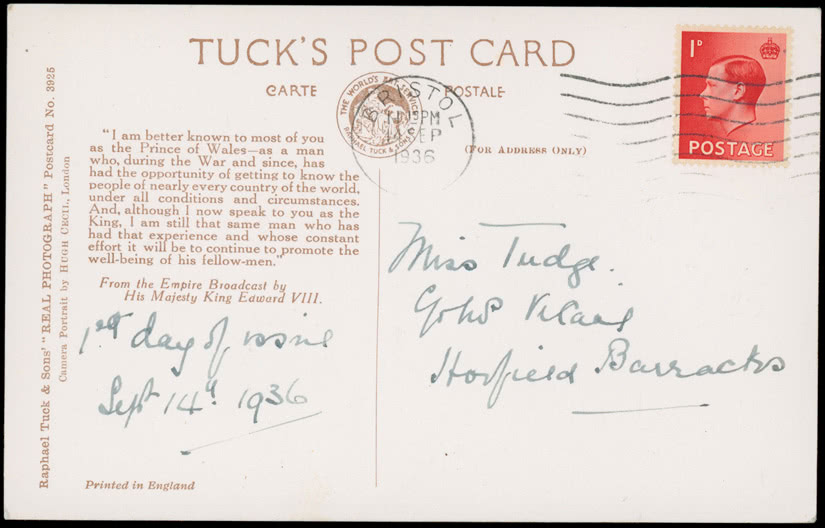 TUCK'S POST CARD
CARTE POSTALE
THE WORLD'S ART SERVICE
RAPHAEL TUCK & SONS
BRISTOL
PM
14 SEP
1936
1D
POSTAGE
(FOR ADDRESS ONLY)
"I am better known to most of you
as the Prince of Wales—as a man
who, during the War and since, has
had the opportunity of getting to know the
people of nearly every country of the world,
under all conditions and circumstances.
And, although I now speak to you as the
King, I am still that same man who has
had that experience and whose constant
effort it will be to continue to promote the
well-being of his fellow-men."
From the Empire Broadcast by
His Majesty King Edward VIII.
1st day of issue
Sept 14th 1936
Miss Tudge.
Horfield Barracks
Printed in England
Raphael Tuck & Sons' "REAL PHOTOGRAPH" Postcard No. 3925
Camera Portrait by HUGH CECIL, London